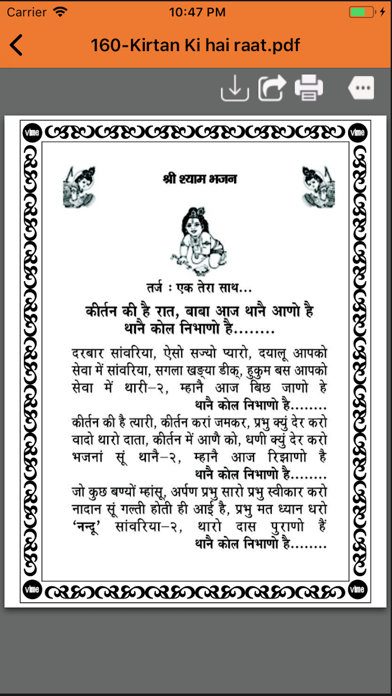 Carrier 10:47 PM
160-Kirtan Ki hai raat.pdf
vime vime
श्री श्याम भजन
तर्ज : एक तेरा साथ...
कीर्तन की है रात, बाबा आज थानै आणो है
थानै कोल निभाणो है........
दरबार सांवरिया, ऐसो सज्यो प्यारो, दयालू आपको
सेवा में सांवरिया, सगला खड्या डीक, हुकुम बस आपको
सेवा में थारी-२, म्हानै आज बिछ जाणो हे
थानै कोल निभाणो है........
कीर्तन की है त्यारी, कीर्तन करां जमकर, प्रभु क्युं देर करो
वादो थारो दाता, कीर्तन में आणै को, धणी क्युं देर करो
भजनां सूं थानै-२, म्हानै आज रिझाणो है
थानै कोल निभाणो है........
जो कुछ बण्यों म्हांसू, अर्पण प्रभु सारो प्रभु स्वीकार करो
नादान सूं गल्ती होती ही आई है, प्रभु मत ध्यान धरो
‘नन्दू’ सांवरिया-२, थारो दास पुराणो हैं
थानै कोल निभाणो है........
vime vime